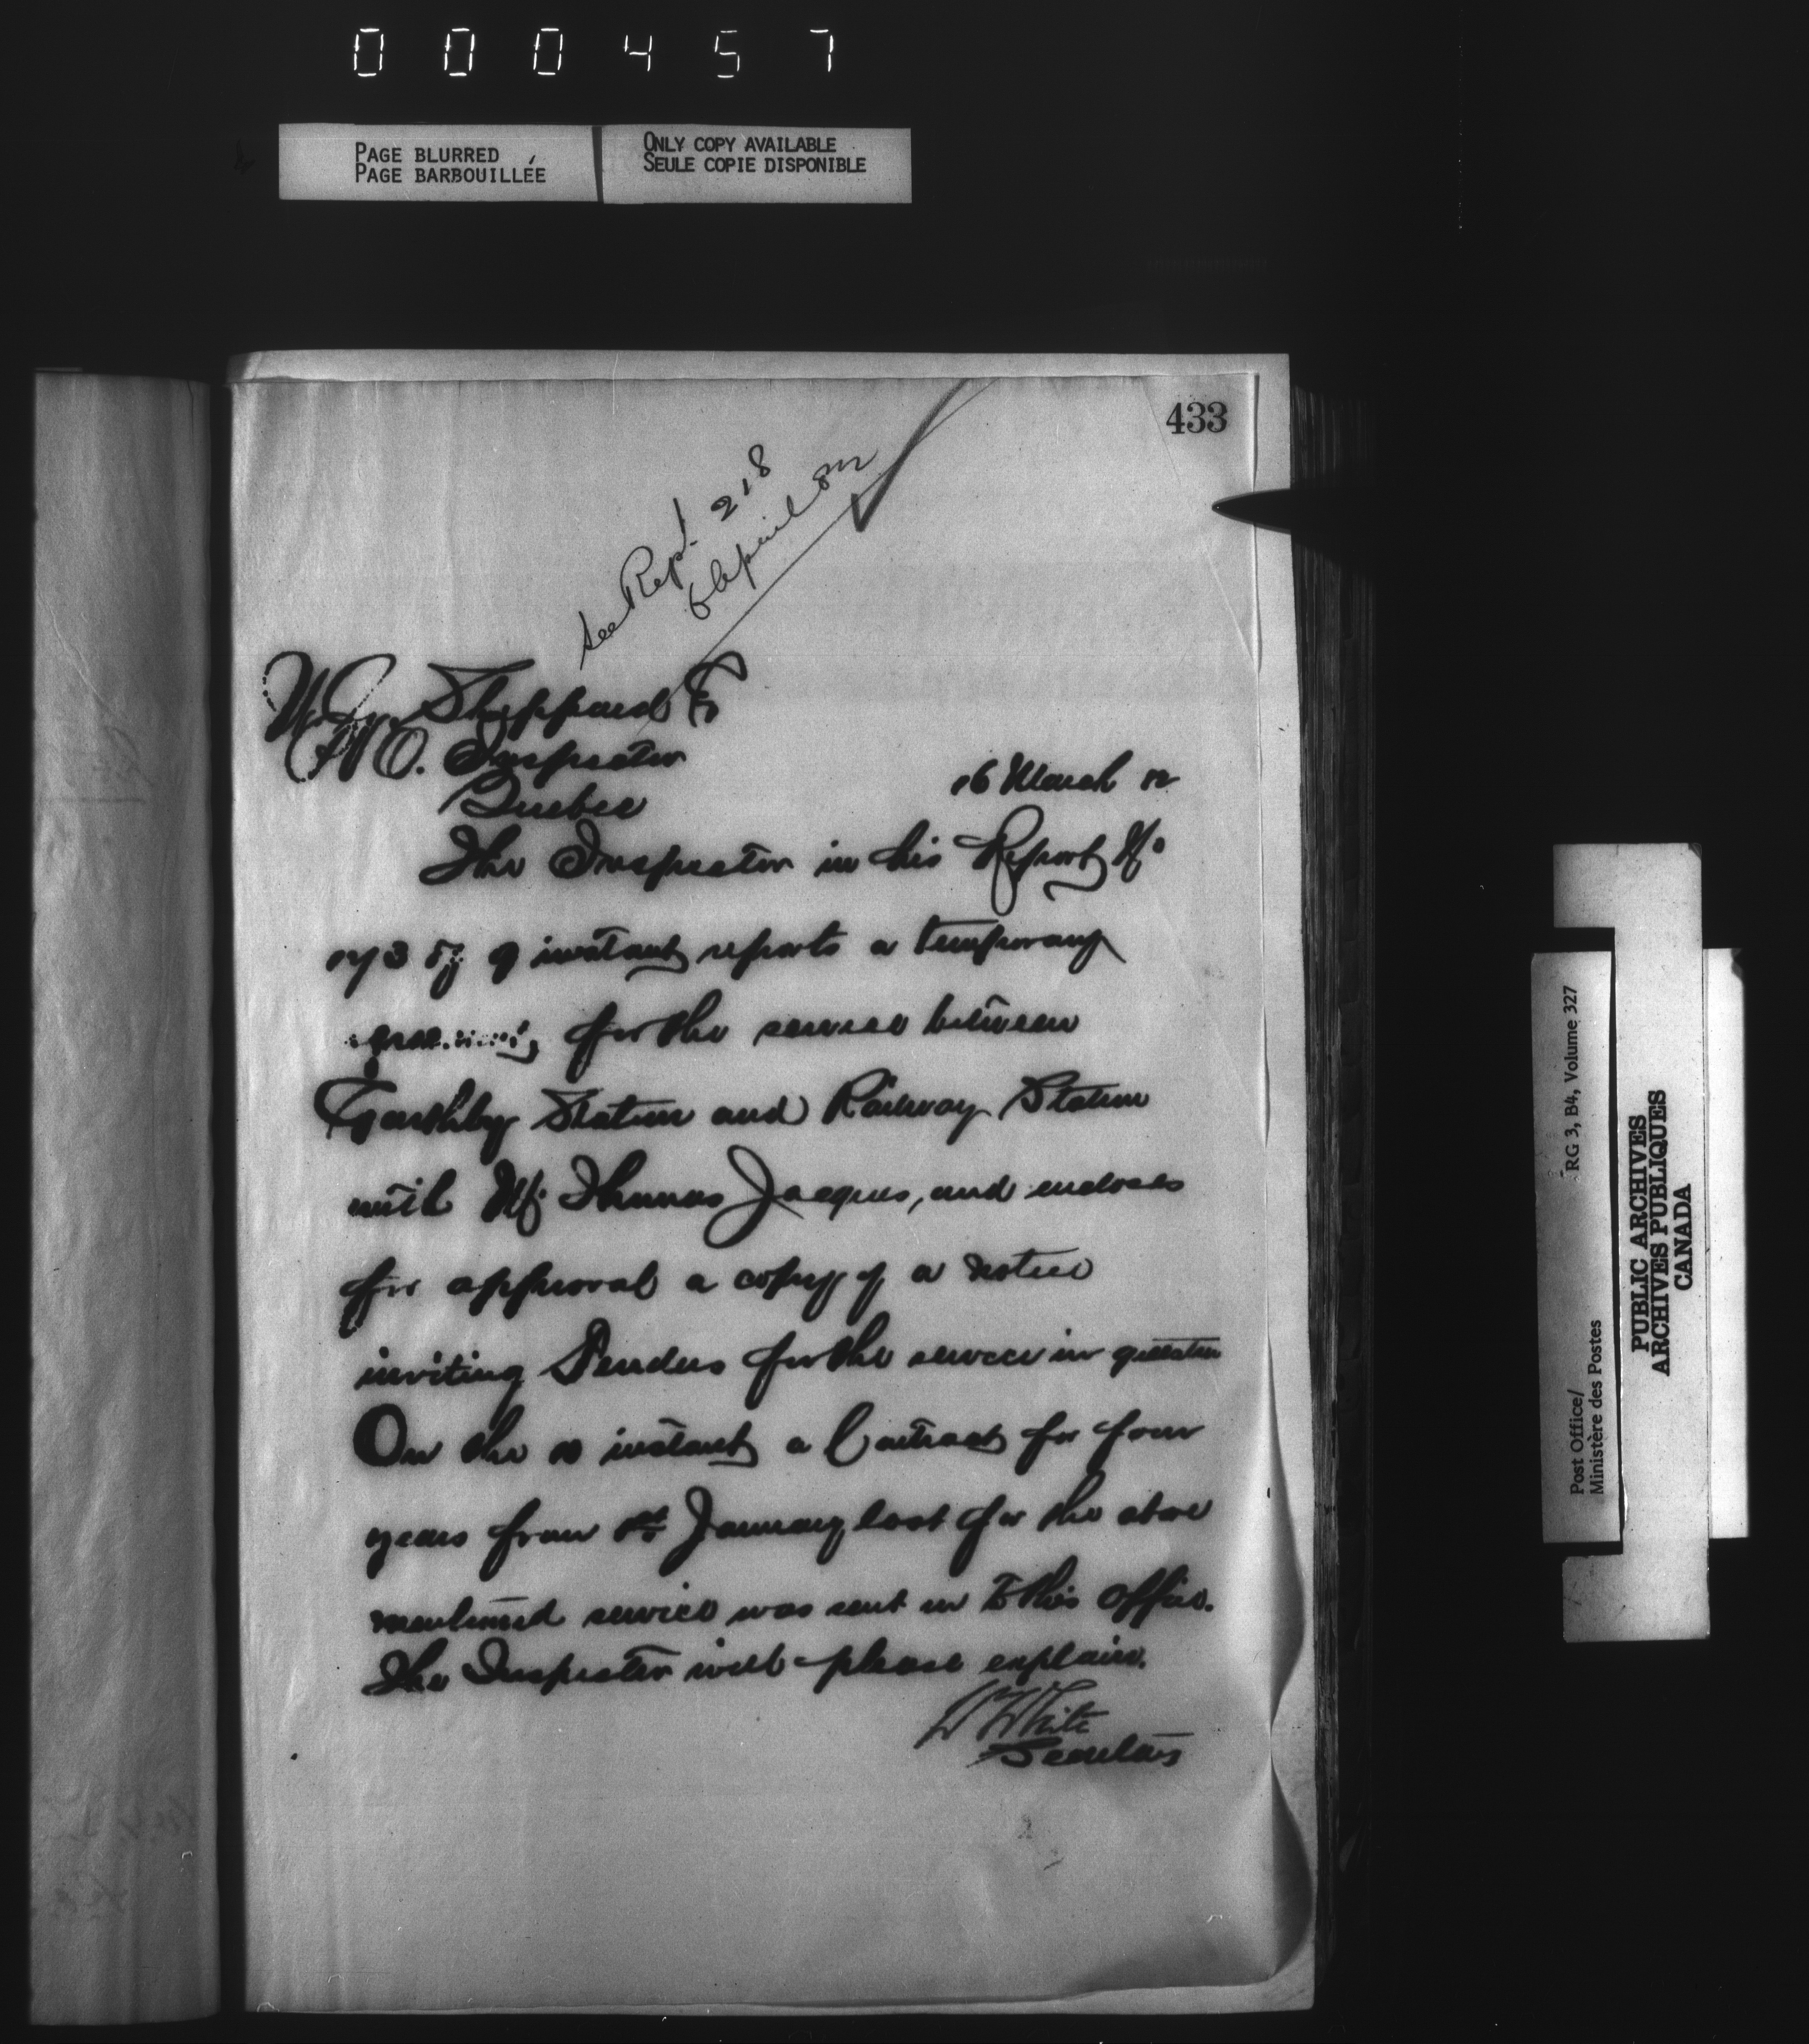 000457
PAGE BLURRED
PAGE BARBOUILLÉE
ONLY COPY AVAILABLE
SEULE COPIE DISPONIBLE
433
See Rept. 218
6 April
Sheppard
P.O. Inspector
Quebec
16 March
The Inspector in his Report No
of 9 instant reports a temporary
for the service between
Garthby Station and Railway Station
with Mr. Thomas Jacques, and encloses
for approval a copy of a notice
inviting Tenders for the service in question
On the instant a Contract for four
years from 1st January last for the above
mentioned service was sent in to this office.
The Inspector will please explain.
W White
Secretary
RG 3, B4, Volume 327
Post Office/
Ministère des Postes
PUBLIC ARCHIVES
ARCHIVES PUBLIQUES
CANADA